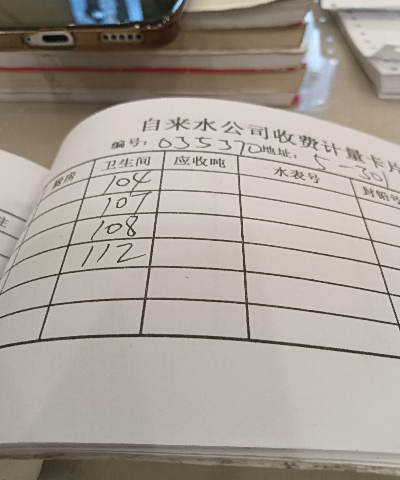 自来水公司收费计量卡片
编号: 035370 地址: 5-301
厨房 卫生间 应收吨 水表号 封铅号
104
107
108
112
注